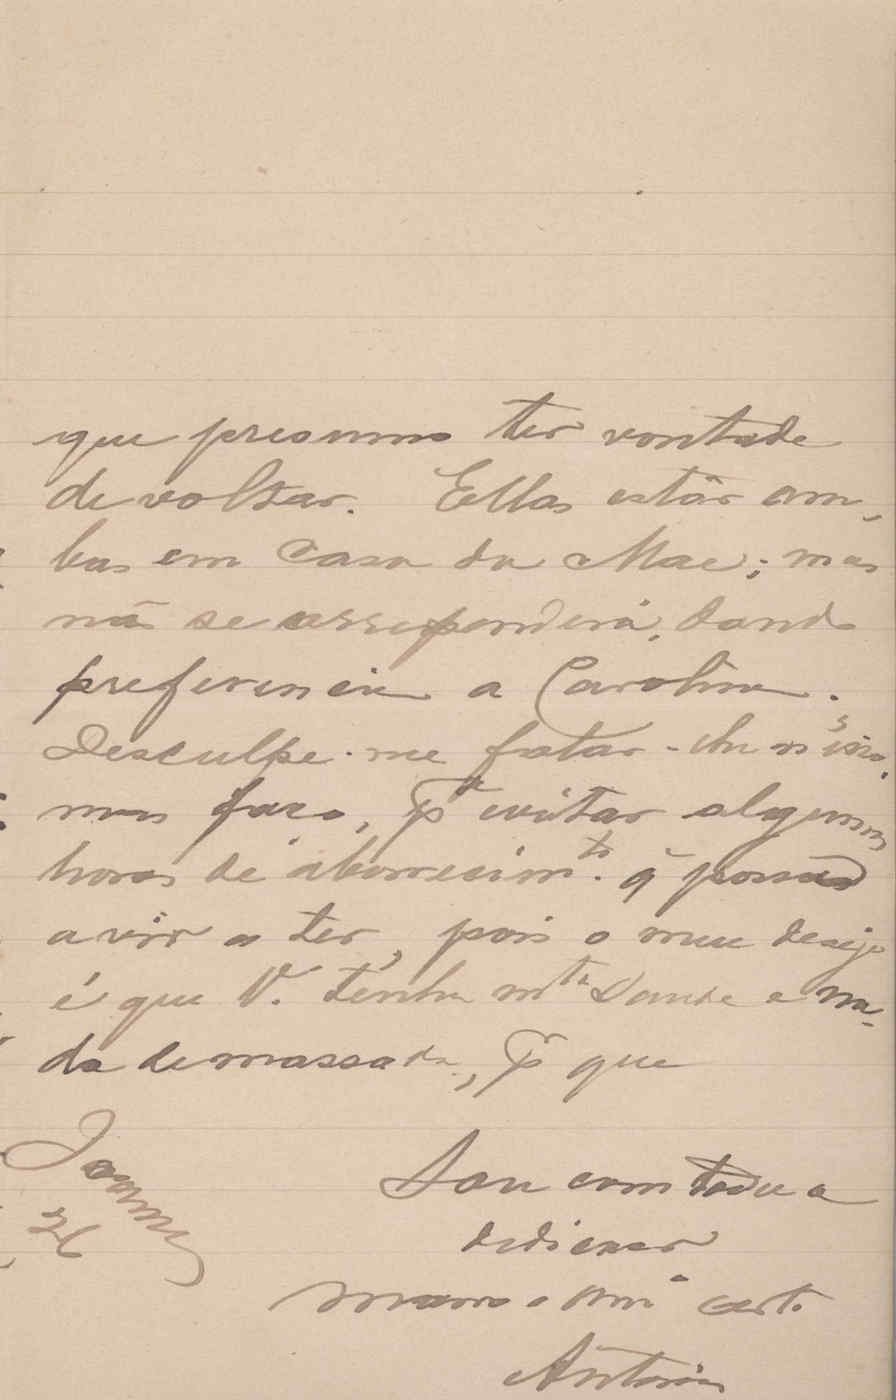 que presumo ter vontade
de voltar. Ellas estão am-
bas em casa da Mae; mas
nã se arrependerá, dando
preferencia a Carolina.
Desculpe-me fallar-lhe n'isso,
mas faço, pª evitar algumas
horas de aborrecimto. q̃ possa
a vir a ter, pois o meu desejo
é que V. tenha mta Saude e na-
da de massada, p que
Sou com toda a
dedicação
mano e amº certo
Antonio